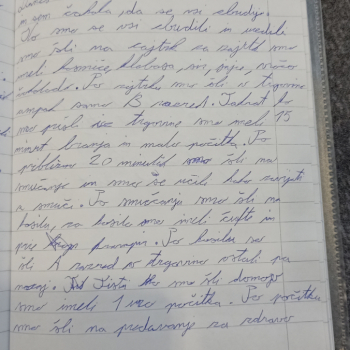 in sem čakala, da se vsi zbudijo.
Ko smo se vsi zbudili in uredili
smo šli na zajtrk za zajtrk smo
imeli hrenovke, klobaso, sir, jajce,
čokolado. Po zajtrku smo šli v trgovino
ampak samo B razred. Takrat ko
smo prišli iz trgovine smo imeli 15
minut branja in malo počitka. Po
približno 20 minutah smo šli na
smučanje in smo se učili kako zaviti
s smuči. Po smučanju smo šli na
kosilo, za kosilo smo imeli čufte in
pire krompir. Po kosilu so
šli A razred v trgovino ostali pa
nazaj. Tisti ko smo šli domov
smo imeli 1 uro počitka. Po počitku
smo šli na predavanje za zdravo